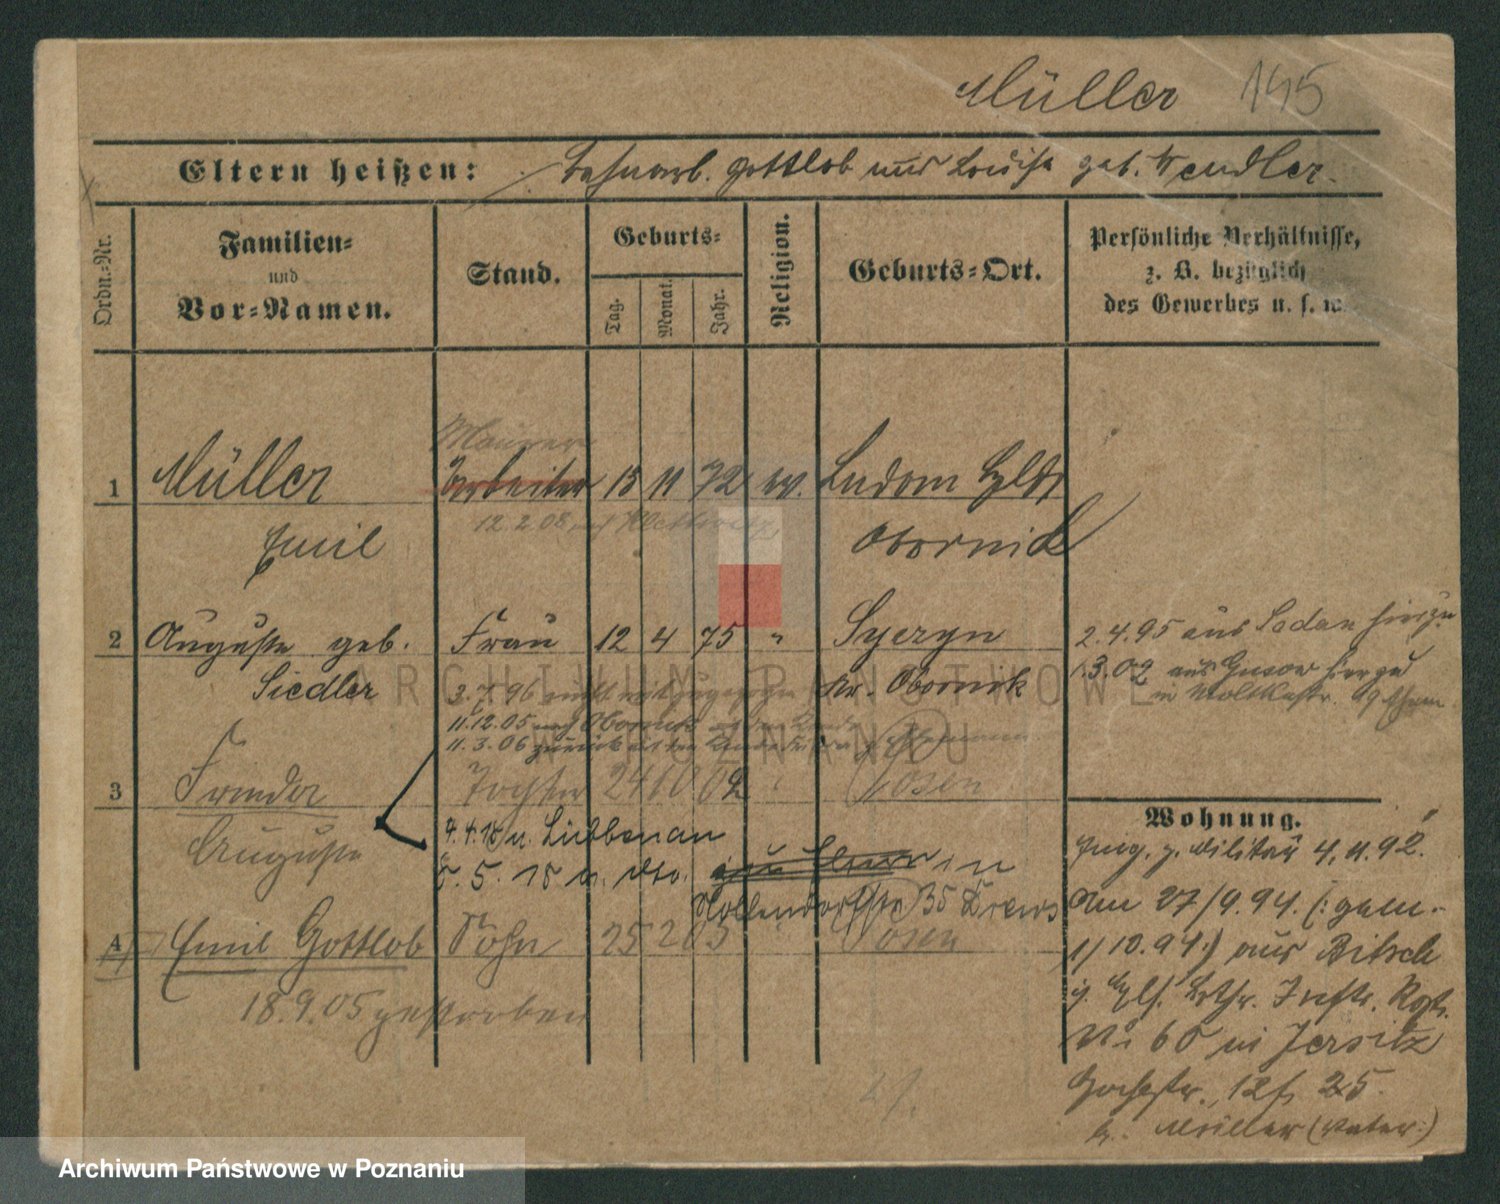 Müller 145
Eltern heißen: Bahnarb. Gottlob und Louise geb. Wendler.
Ordn.-Nr.
Familien-
und
Vor-Namen.
Stand.
Geburts-
Tag.
Monat.
Jahr.
Religion.
Geburts-Ort.
Persönliche Verhältnisse,
z. B. bezüglich
des Gewerbes u. s. w.
Maurer
1 Müller Arbeiter 13 11 72 ev. Ludom
12.2.08
Emil Obornik
2 Auguste geb. Frau 12 4 75 "
Siedler Kr. Obornik
3.7.96 nicht mitzugezogen
11.12.05 nach Obornik
11.3.06 zurück
2.4.95 aus Sedan hierzu
1.3.02 aus Gurow hierzu
in Moltkestr. 19
3 Frieda Tochter 24 10 02 " Posen
Auguste
4.4.18 n. Liebenau
5.5.18 v. dto. in
Nollendorfstr. 35 Drews
4 Emil Gottlob Sohn 25 2 05 Posen
18.9.05 gestorben
Wohnung.
Zug. z. Militär 4.11.92.
Am 27/9.94. (: gem.
1/10.94:) aus Bitsch
Inftr. Rgt.
No 60 in Jersitz
12 25.
b. Müller (Vater:)
ARCHIWUM PAŃSTWOWE
W POZNANIU
Archiwum Państwowe w Poznaniu